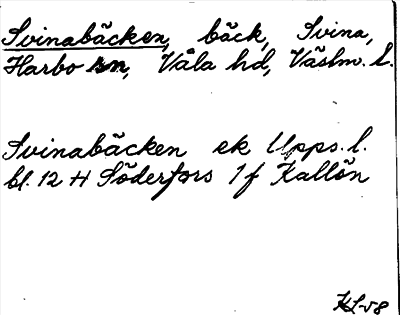 Svinabäcken, bäck, Svina,
Harbo sn, Våla hd, Västm. l.
Svinabäcken ek Upps. l.
bl. 12 H Söderfors 1f Kallön
HL-58